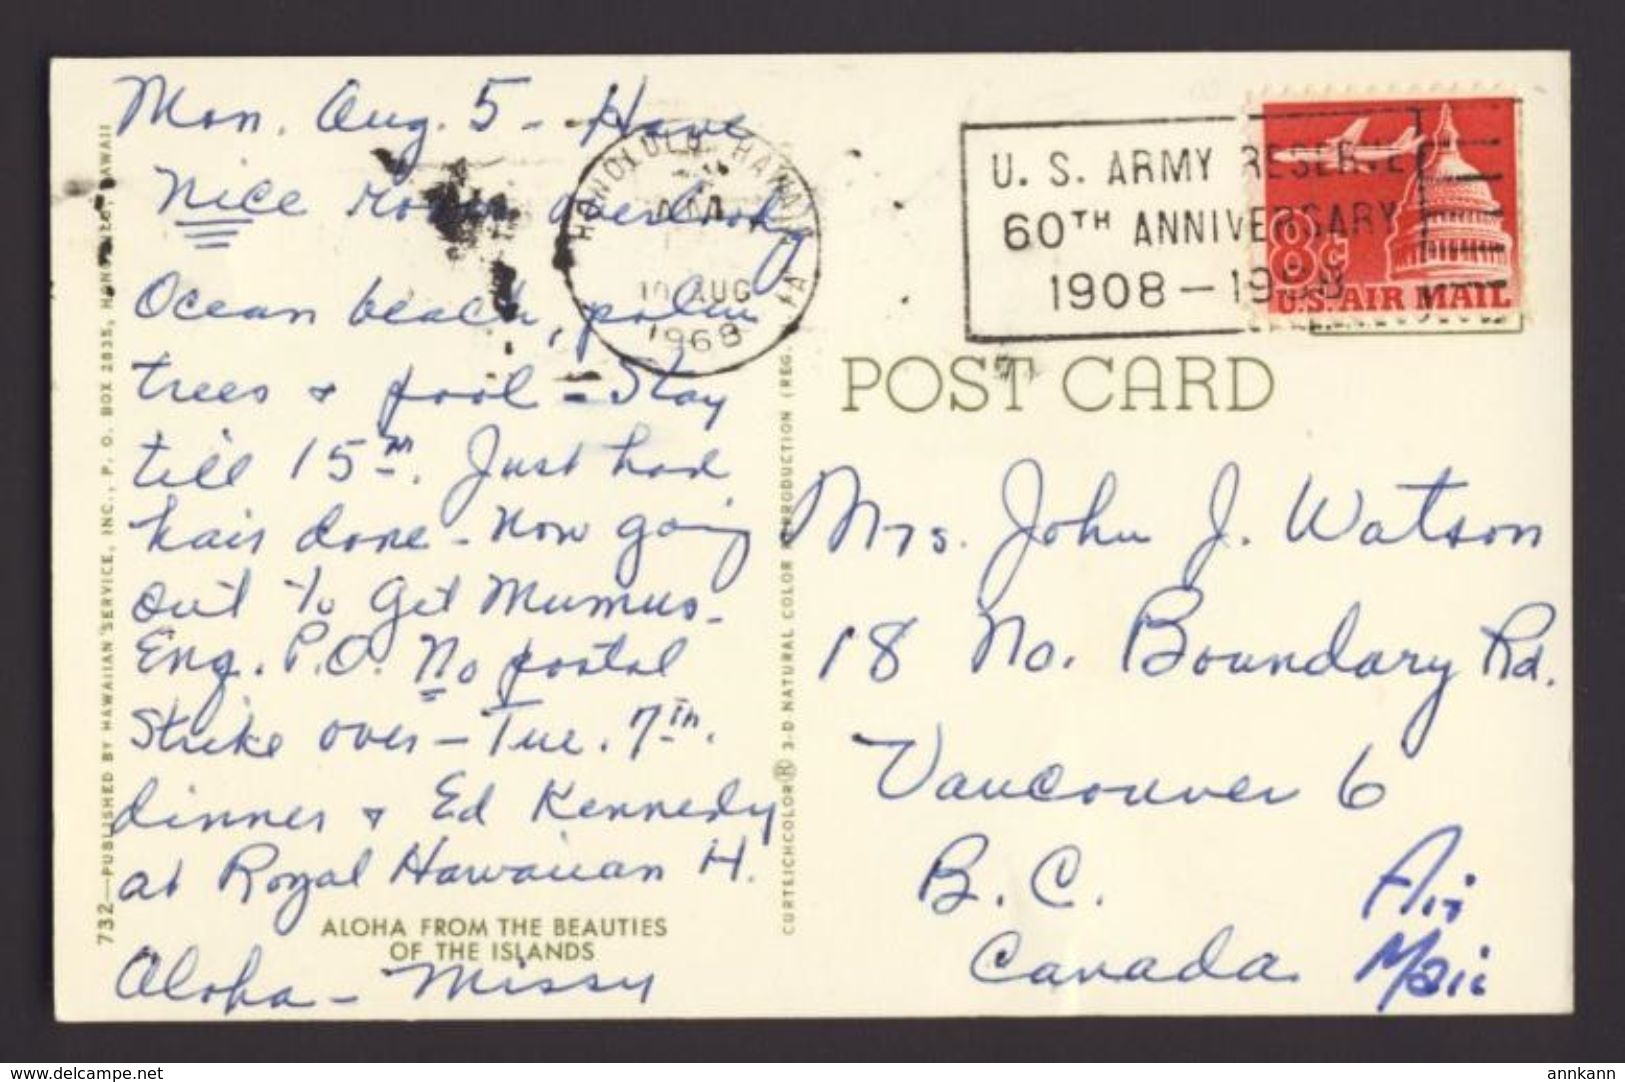 Mon. Aug. 5 - Have
Nice room overlookg
Ocean beach, palm
trees + pool - Stay
till 15th. Just had
hair done - Now going
out to get Mumus -
Eng. P.O. No postal
Strike over - Tue. 7th.
dinner + Ed Kennedy
at Royal Hawaiian H.
ALOHA FROM THE BEAUTIES
OF THE ISLANDS
Aloha - Missy
732—PUBLISHED BY HAWAIIAN SERVICE, INC., P. O. BOX 2835, HONOLULU, HAWAII
CURTEICHCOLOR® 3-D NATURAL COLOR REPRODUCTION (REG.
HONOLULU HAWAII
AM
10 AUG
1968
U. S. ARMY RESERVE
60TH ANNIVERSARY
1908 — 1968
8¢
U.S. AIR MAIL
POST CARD
Mrs. John J. Watson
18 No. Boundary Rd.
Vancouver 6
B. C.
Canada
Air
Mail
www.delcampe.net
annkann